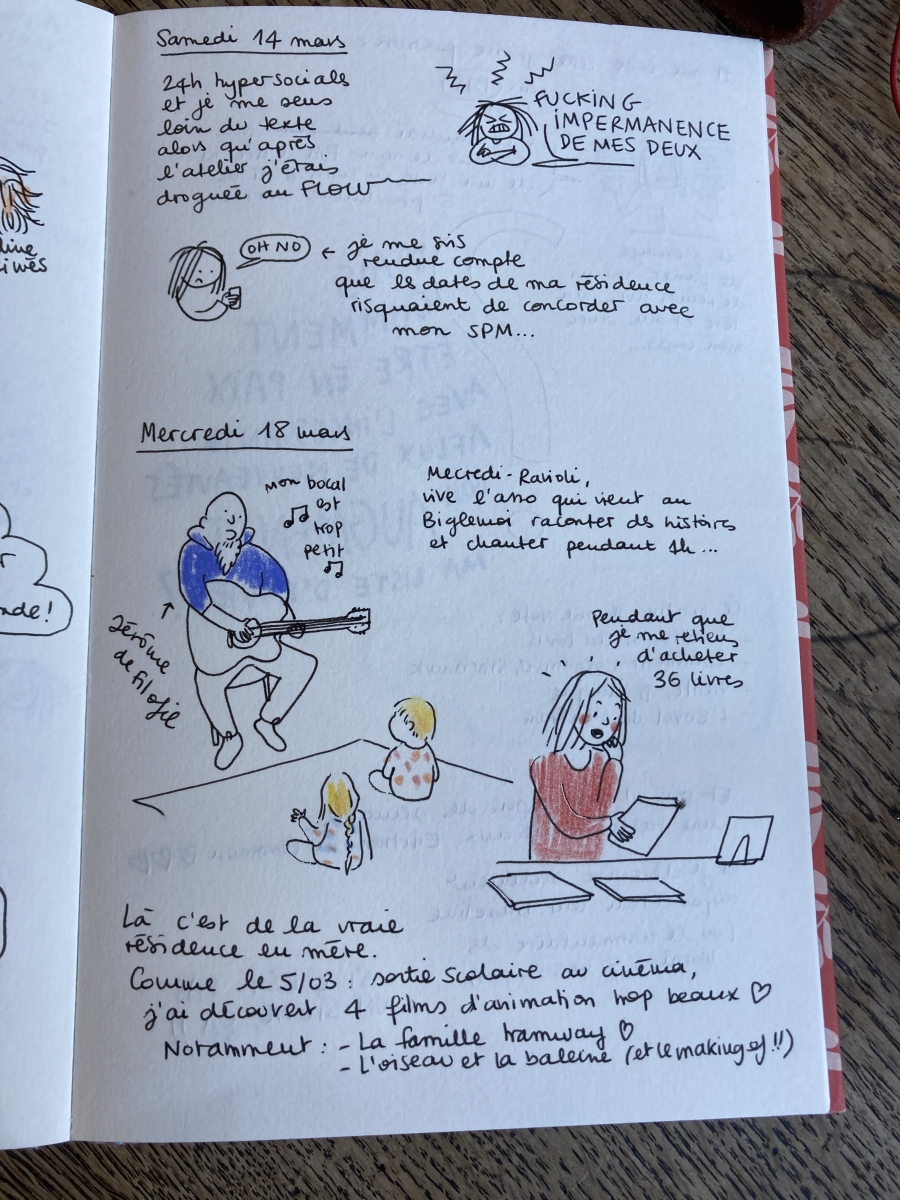 Samedi 14 mars
24h hypersociales
et je me sens
loin du texte
alors qu'après
l'atelier j'étais
droguée au FLOW
FUCKING
IMPERMANENCE
DE MES DEUX
OH NO
← je me sis
rendue compte
que les dates de ma résidence
risquaient de concorder avec
mon SPM...
Mercredi 18 mars
Mon bocal
est
trop
petit
Mecredi-Ravioli,
vive l'asso qui vient au
Biglemoi raconter des histoires
et chanter pendant 1h...
Jérôme
de filofie
Pendant que
je me retiens
d'acheter
36 livres
Là c'est de la vraie
résidence en mère.
Comme le 5/03 : sortie scolaire au cinéma,
j'ai découvert 4 films d'animation trop beaux ♡
Notamment : - La famille tramway ♡
- L'oiseau et la baleine (et le making of !!)
nde!